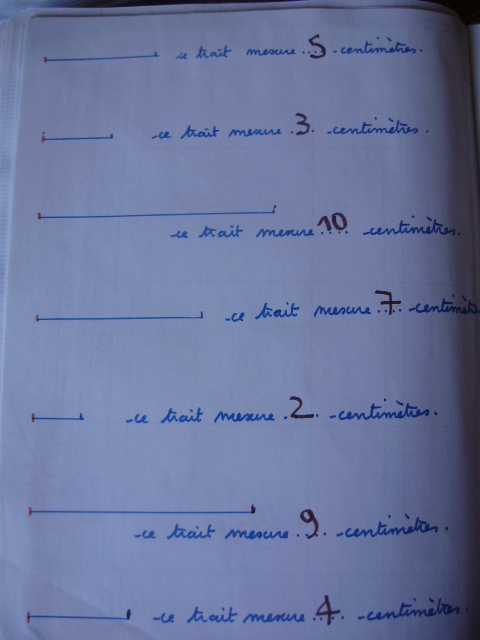 ce trait mesure ..5.. centimètres.
ce trait mesure .3. centimètres.
ce trait mesure 10.... centimètres.
ce trait mesure .7... centimètres
ce trait mesure .2. centimètres.
ce trait mesure .9.. centimètres.
ce trait mesure .4.. centimètres.